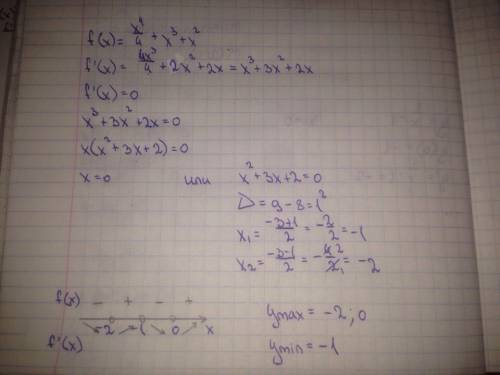 f(x) = x⁴/4 + x³ + x²
f'(x) = 4x³/4 + 2x² + 2x = x³ + 3x² + 2x
f'(x) = 0
x³ + 3x² + 2x = 0
x(x² + 3x + 2) = 0
x = 0 или x² + 3x + 2 = 0
D = 9 - 8 = 1²
x₁ = -3+1/2 = -2/2 = -1
x₂ = -3-1/2 = -4²/2₁ = -2
f(x) - + - +
-2 -1 0 x
f'(x)
ymax = -2; 0
ymin = -1